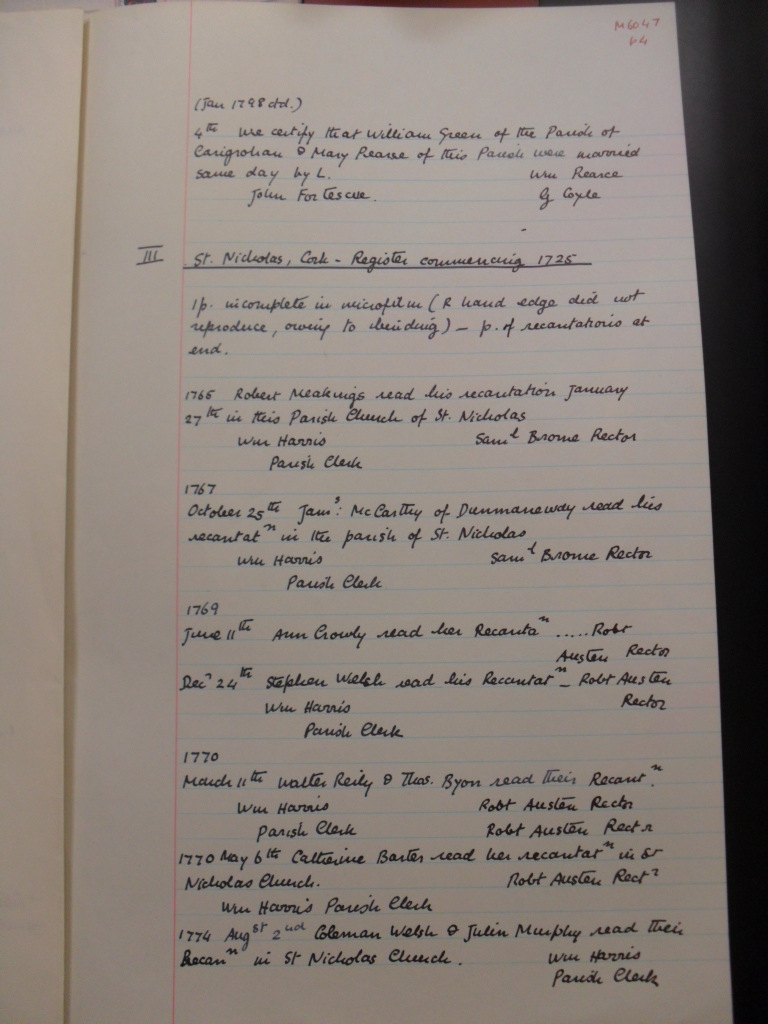 M6047
p4
(Jan 1798 ctd.)
4th We certify that William Green of the Parish of
Carigrohan & Mary Pearce of this Parish were married
same day by L. Wm Pearce
John Fortescue. G Coyle
III St. Nicholas, Cork - Register commencing 1725
1p. incomplete in microfilm (R hand edge did not
reproduce, owing to binding) - p. of recantations at
end.
1765 Robert Meakings read his recantation January
27th in this Parish Church of St. Nicholas
Wm Harris Saml Browne Rector
Parish Clerk
1767
October 25th Jams: McCarthy of Dunmanewdy read his
recantatn in the parish of St. Nicholas
Wm Harris Saml Browne Rector
Parish Clerk
1769
June 11th Ann Crowly read her Recantan ..... Robt
Austen Rector
Decr 24th Stephen Welsh read his Recantatn - Robt Austen
Wm Harris Rector
Parish Clerk
1770
March 11th Walter Reily & Thos. Byon read their Recantn.
Wm Harris Robt Austen Rector
Parish Clerk Robt Austen Rectr
1770 May 6th Catherine Barter read her recantatn in St
Nicholas Church. Robt Austen Rectr
Wm Harris Parish Clerk
1774 Augst 2nd Coleman Welsh & Julin Murphy read their
Recann in St Nicholas Church. Wm Harris
Parish Clerk